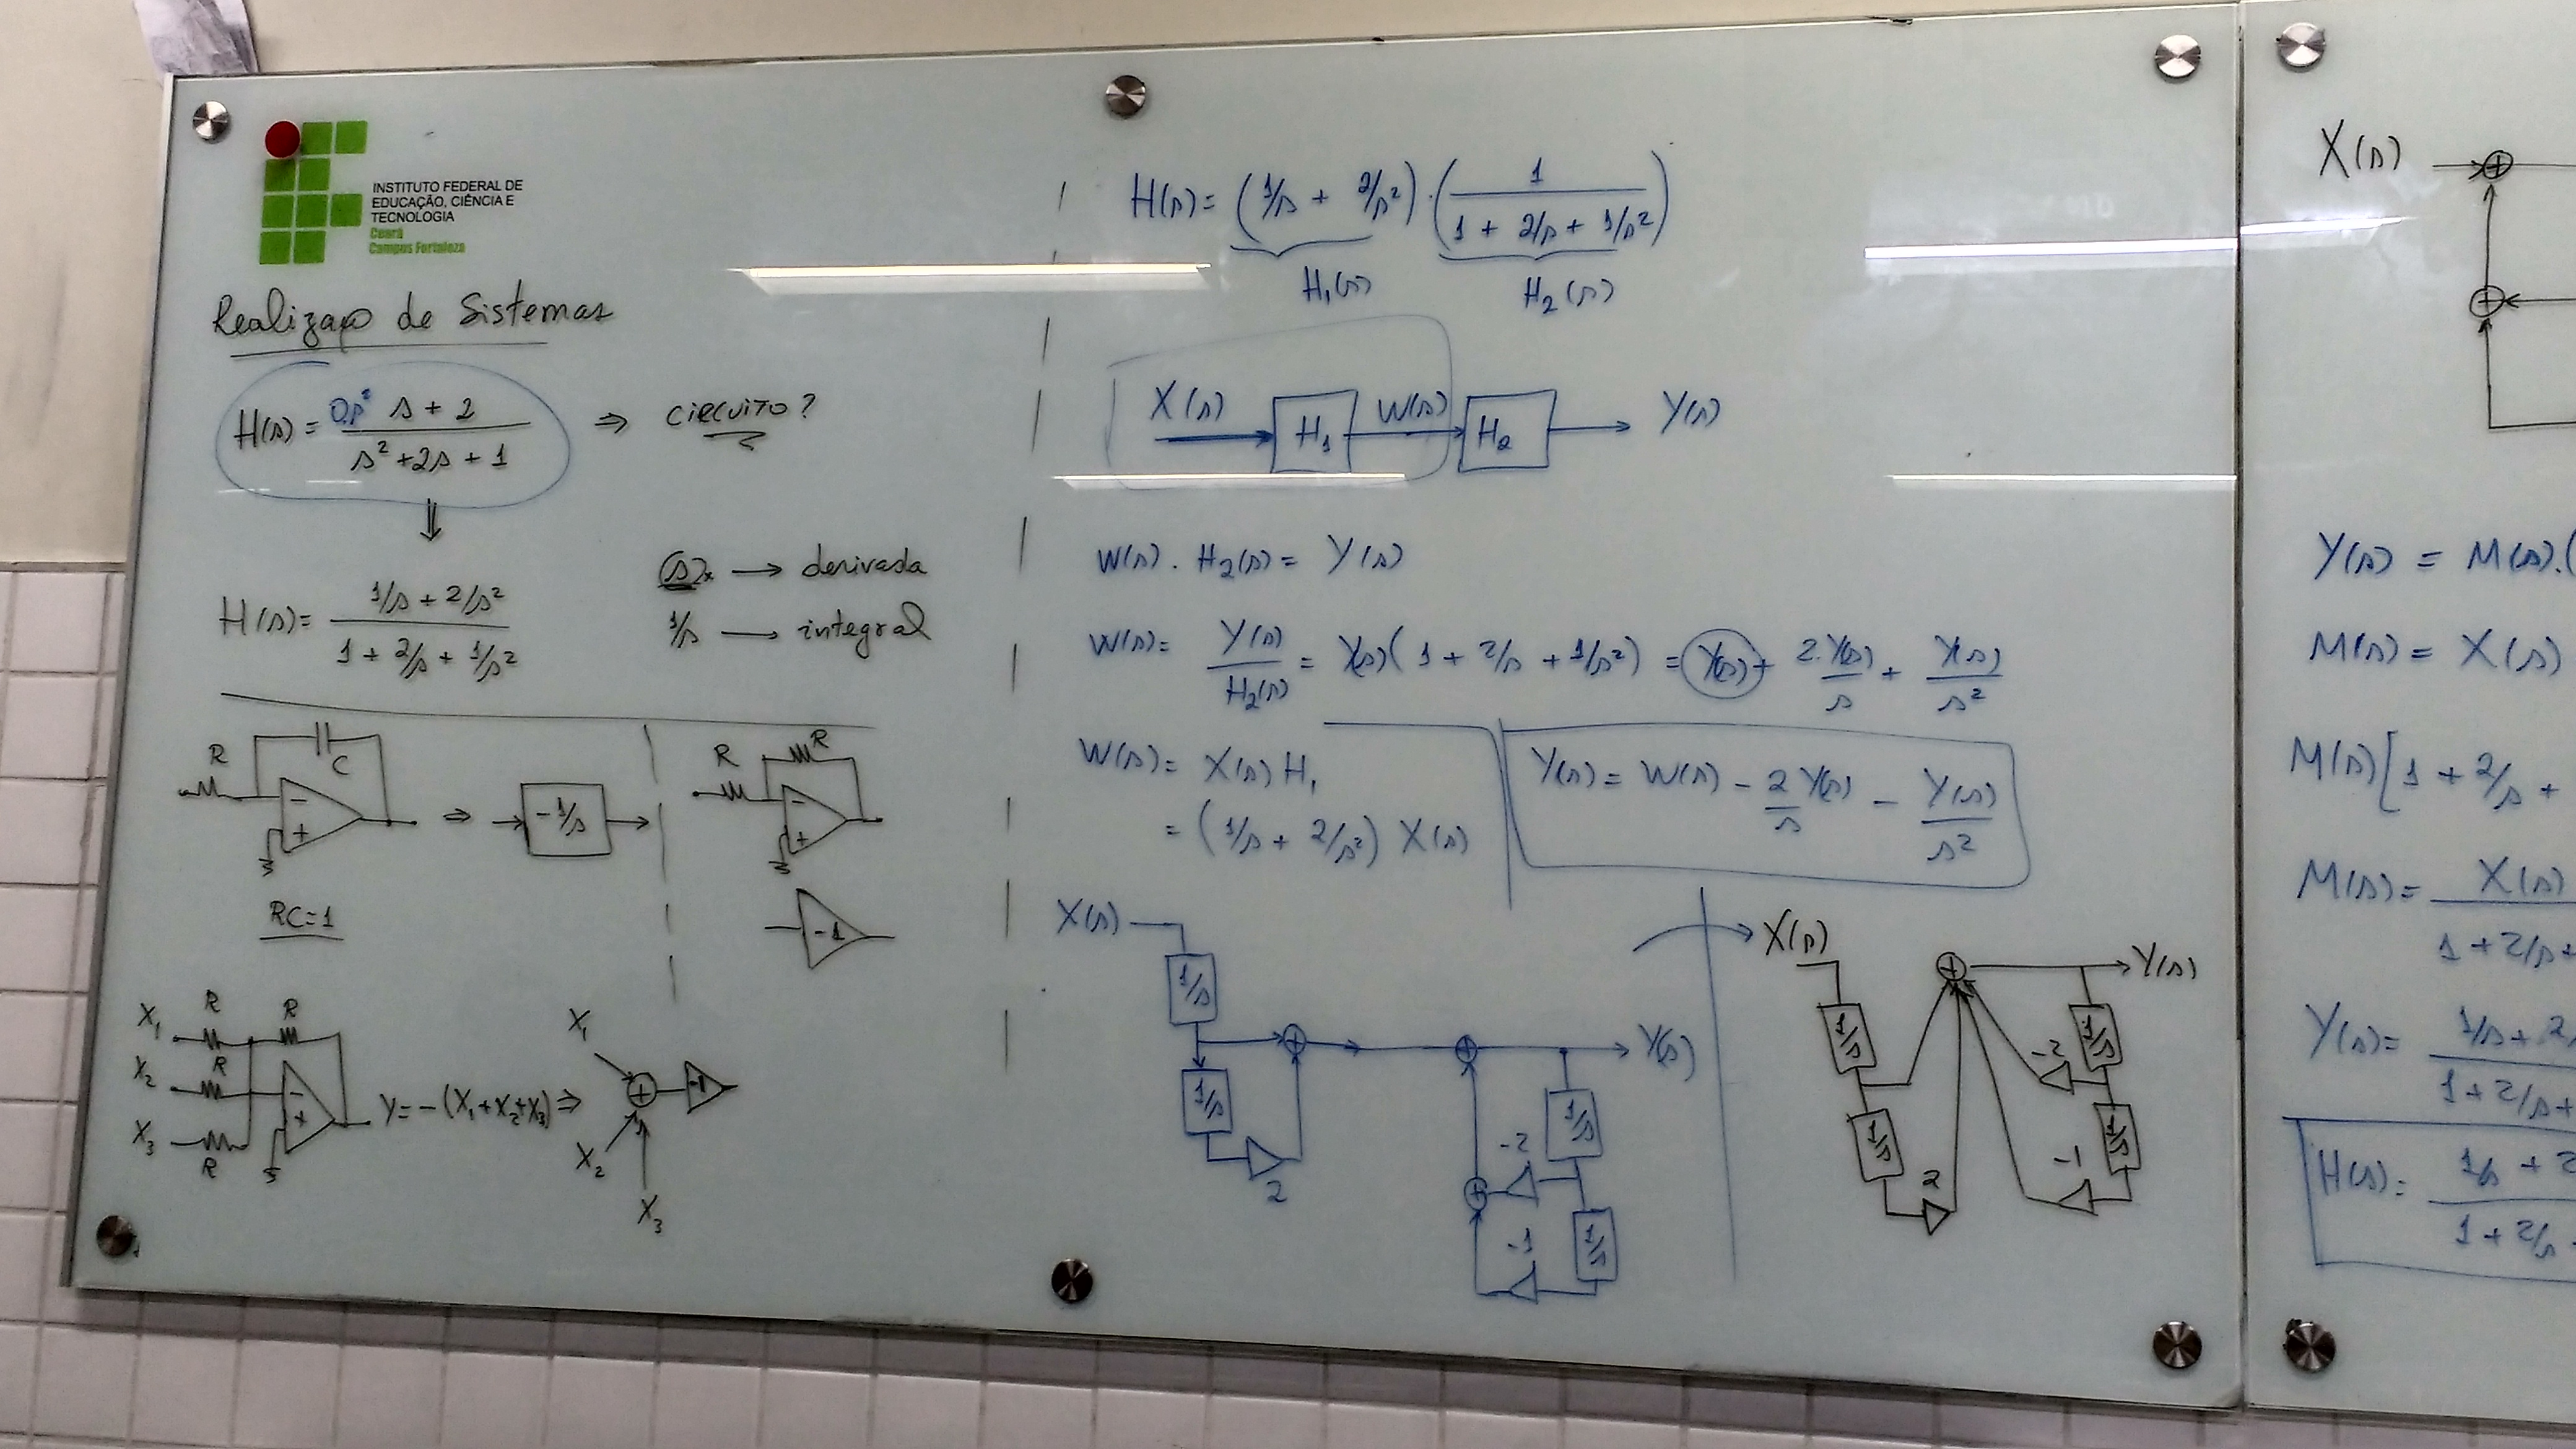 INSTITUTO FEDERAL DE
EDUCAÇÃO, CIÊNCIA E
TECNOLOGIA
Ceará
Campus Fortaleza
Realizaço de Sistemas
H(s) = (0.s² s + 2)/(s² + 2s + 1) ⇒ CIRCUITO?
⇓
H(s) = (1/s + 2/s²)/(1 + 2/s + 1/s²)
(s)x → derivada
1/s → integral
R
C
-
+
⇒ -1/s
RC=1
R
R
-
+
-1
X₁ R R
X₂ R
X₃ R
-
+
Y = -(X₁+X₂+X₃) ⇒
X₁
X₂
X₃
+
-1
H(s) = (1/s + 2/s²) · (1/(1 + 2/s + 1/s²))
H₁(s) H₂(s)
X(s) H₁ W(s) H₂ Y(s)
W(s) . H₂(s) = Y(s)
W(s) = Y(s)/H₂(s) = Y(s)(1 + 2/s + 1/s²) = Y(s) + 2.Y(s)/s + Y(s)/s²
W(s) = X(s) H₁
= (1/s + 2/s²) X(s)
Y(s) = W(s) - 2/s Y(s) - Y(s)/s²
X(s)
1/s
+ + Y(s)
1/s 1/s
2
-2
+
1/s
-1
X(s)
+ Y(s)
1/s 1/s
-2
1/s 1/s
2 -1
X(s) +
+
Y(s) = M(s).(
M(s) = X(s)
M(s)[1 + 2/s +
M(s) = X(s)/1 + 2/s +
Y(s) = 1/s + 2/1 + 2/s +
H(s) = 1/s + 2/1 + 2/s